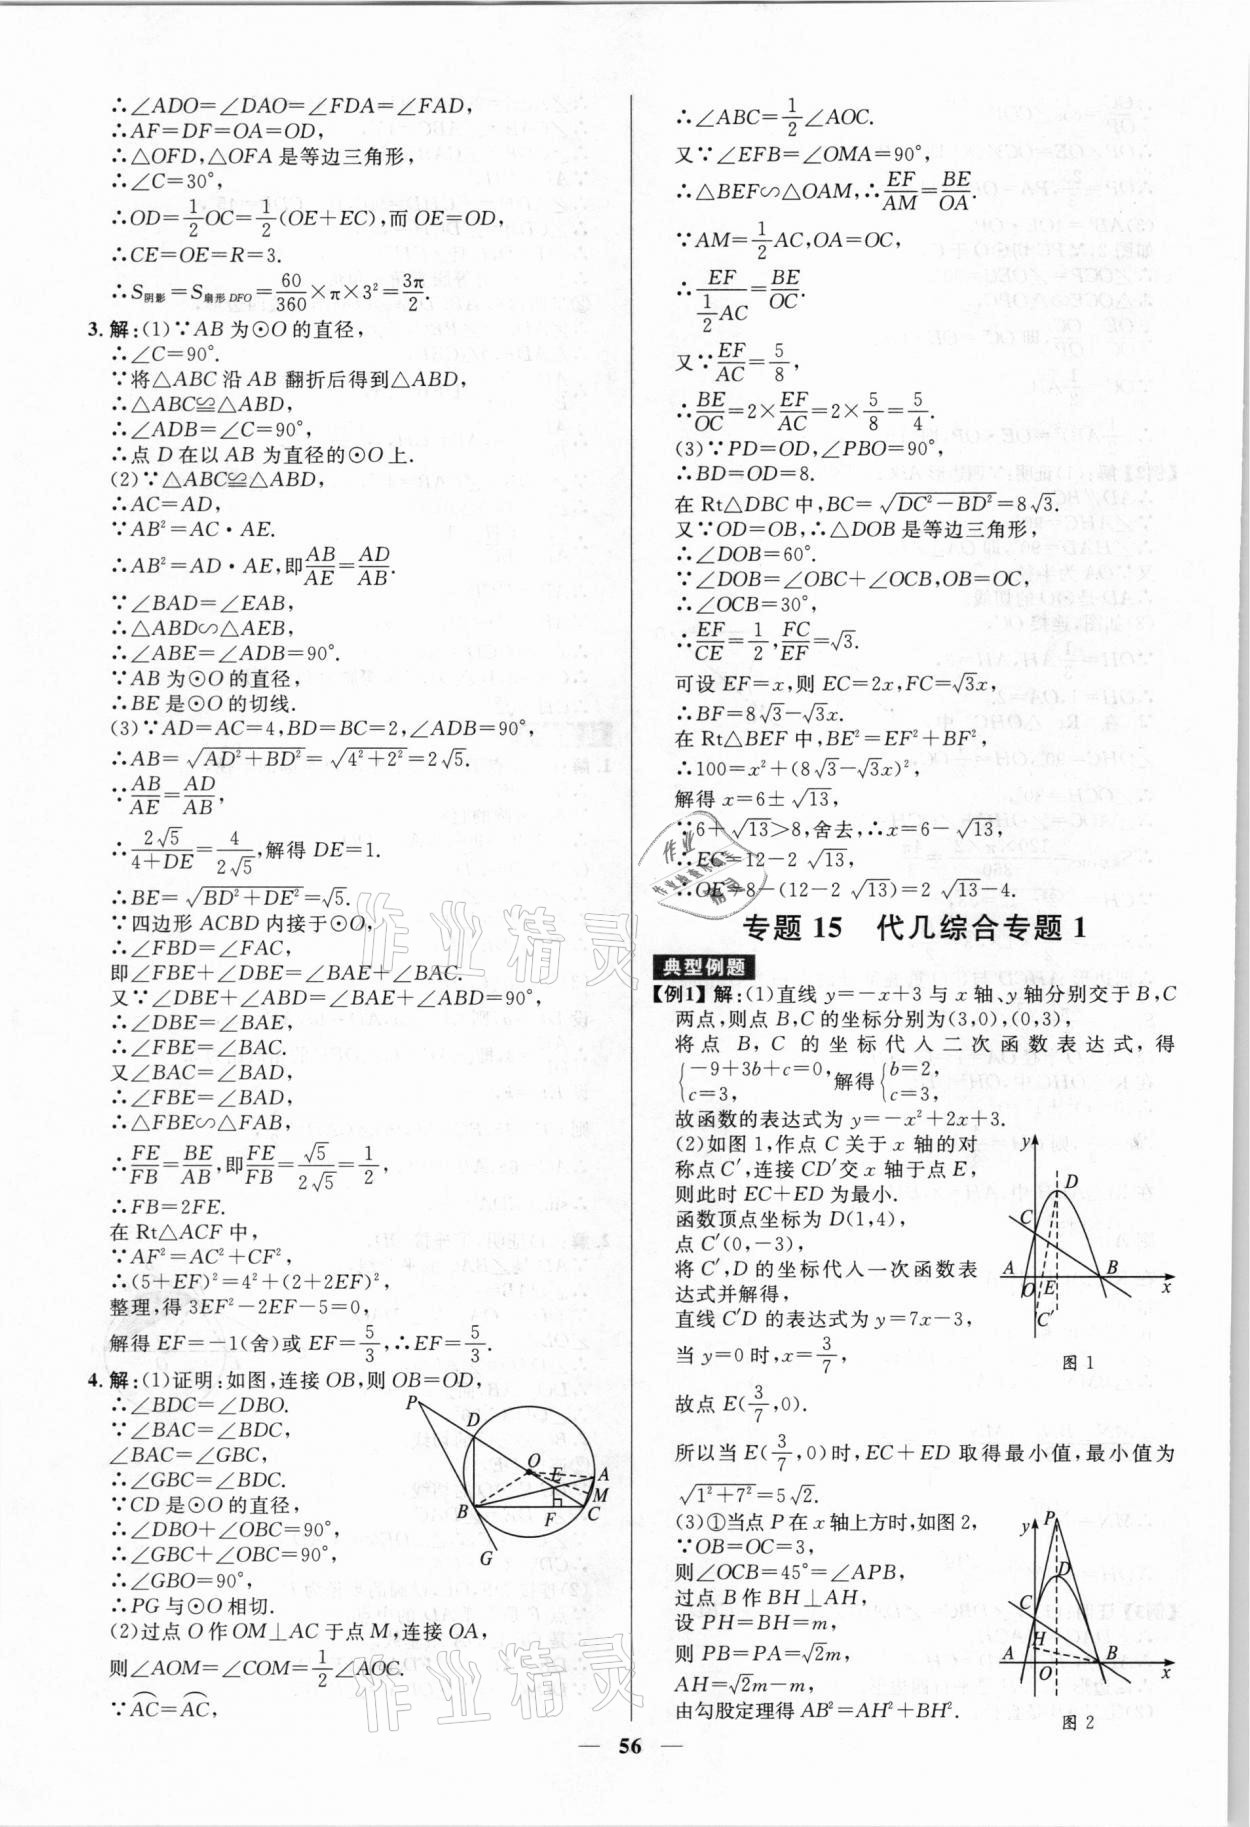 ∴∠ADO=∠DAO=∠FDA=∠FAD,
∴AF=DF=OA=OD,
∴△OFD,△OFA 是等边三角形,
∴∠C=30°,
∴OD=1/2 OC=1/2(OE+EC),而 OE=OD,
∴CE=OE=R=3.
∴S阴影=S扇形DFO=60/360×π×3²=3π/2.
3.解:(1)∵AB 为⊙O 的直径,
∴∠C=90°.
∵将△ABC 沿 AB 翻折后得到△ABD,
∴△ABC≌△ABD,
∴∠ADB=∠C=90°,
∴点 D 在以 AB 为直径的⊙O 上.
(2)∵△ABC≌△ABD,
∴AC=AD,
∵AB²=AC·AE.
∴AB²=AD·AE,即AB/AE=AD/AB.
∵∠BAD=∠EAB,
∴△ABD∽△AEB,
∴∠ABE=∠ADB=90°.
∵AB 为⊙O 的直径,
∴BE 是⊙O 的切线.
(3)∵AD=AC=4,BD=BC=2,∠ADB=90°,
∴AB=√(AD²+BD²)=√(4²+2²)=2√5.
∵AB/AE=AD/AB,
∴2√5/(4+DE)=4/(2√5),解得 DE=1.
∴BE=√(BD²+DE²)=√5.
∵四边形 ACBD 内接于⊙O,
∴∠FBD=∠FAC,
即∠FBE+∠DBE=∠BAE+∠BAC.
又∵∠DBE+∠ABD=∠BAE+∠ABD=90°,
∴∠DBE=∠BAE,
∴∠FBE=∠BAC.
又∠BAC=∠BAD,
∴∠FBE=∠BAD,
∴△FBE∽△FAB,
∴FE/FB=BE/AB,即FE/FB=√5/(2√5)=1/2,
∴FB=2FE.
在 Rt△ACF 中,
∵AF²=AC²+CF²,
∴(5+EF)²=4²+(2+2EF)²,
整理,得 3EF²-2EF-5=0,
解得 EF=-1(舍)或 EF=5/3,∴EF=5/3.
4.解:(1)证明:如图,连接 OB,则 OB=OD,
∴∠BDC=∠DBO.
∵∠BAC=∠BDC,
∠BAC=∠GBC,
∴∠GBC=∠BDC.
∵CD 是⊙O 的直径,
∴∠DBO+∠OBC=90°,
∴∠GBC+∠OBC=90°,
∴∠GBO=90°,
∴PG 与⊙O 相切.
P
D
O
A
E
M
B
F
C
G
(2)过点 O 作 OM⊥AC 于点 M,连接 OA,
则∠AOM=∠COM=1/2∠AOC.
∵AC⌒=AC⌒,
∴∠ABC=1/2∠AOC.
又∵∠EFB=∠OMA=90°,
∴△BEF∽△OAM,∴EF/AM=BE/OA.
∵AM=1/2 AC,OA=OC,
∴EF/(1/2 AC)=BE/OC.
又∵EF/AC=5/8,
∴BE/OC=2×EF/AC=2×5/8=5/4.
(3)∵PD=OD,∠PBO=90°,
∴BD=OD=8.
在 Rt△DBC 中,BC=√(DC²-BD²)=8√3.
又∵OD=OB,∴△DOB 是等边三角形,
∴∠DOB=60°.
∵∠DOB=∠OBC+∠OCB,OB=OC,
∴∠OCB=30°,
∴EF/CE=1/2,FC/EF=√3.
可设 EF=x,则 EC=2x,FC=√3x,
∴BF=8√3-√3x.
在 Rt△BEF 中,BE²=EF²+BF²,
∴100=x²+(8√3-√3x)²,
解得 x=6±√13,
∵6+√13>8,舍去,∴x=6-√13,
∴EC=12-2√13,
∴OE=8-(12-2√13)=2√13-4.
专题 15 代几综合专题 1
典型例题
【例1】解:(1)直线 y=-x+3 与 x 轴、y 轴分别交于 B,C
两点,则点 B,C 的坐标分别为(3,0),(0,3),
将点 B,C 的坐标代入二次函数表达式,得
{-9+3b+c=0, c=3, 解得{b=2, c=3,
故函数的表达式为 y=-x²+2x+3.
(2)如图 1,作点 C 关于 x 轴的对
称点 C′,连接 CD′交 x 轴于点 E,
则此时 EC+ED 为最小.
函数顶点坐标为 D(1,4),
点 C′(0,-3),
将 C′,D 的坐标代入一次函数表
达式并解得,
直线 C′D 的表达式为 y=7x-3,
当 y=0 时,x=3/7,
故点 E(3/7,0).
y
D
C
A
O
E
B
x
C′
图 1
所以当 E(3/7,0)时,EC+ED 取得最小值,最小值为
√(1²+7²)=5√2.
(3)①当点 P 在 x 轴上方时,如图 2,
∵OB=OC=3,
则∠OCB=45°=∠APB,
过点 B 作 BH⊥AH,
设 PH=BH=m,
则 PB=PA=√2m,
AH=√2m-m,
由勾股定理得 AB²=AH²+BH².
y
P
D
C
H
A
O
B
x
图 2
56
作业精灵
作业精灵
作业
作业检查小助手
精灵